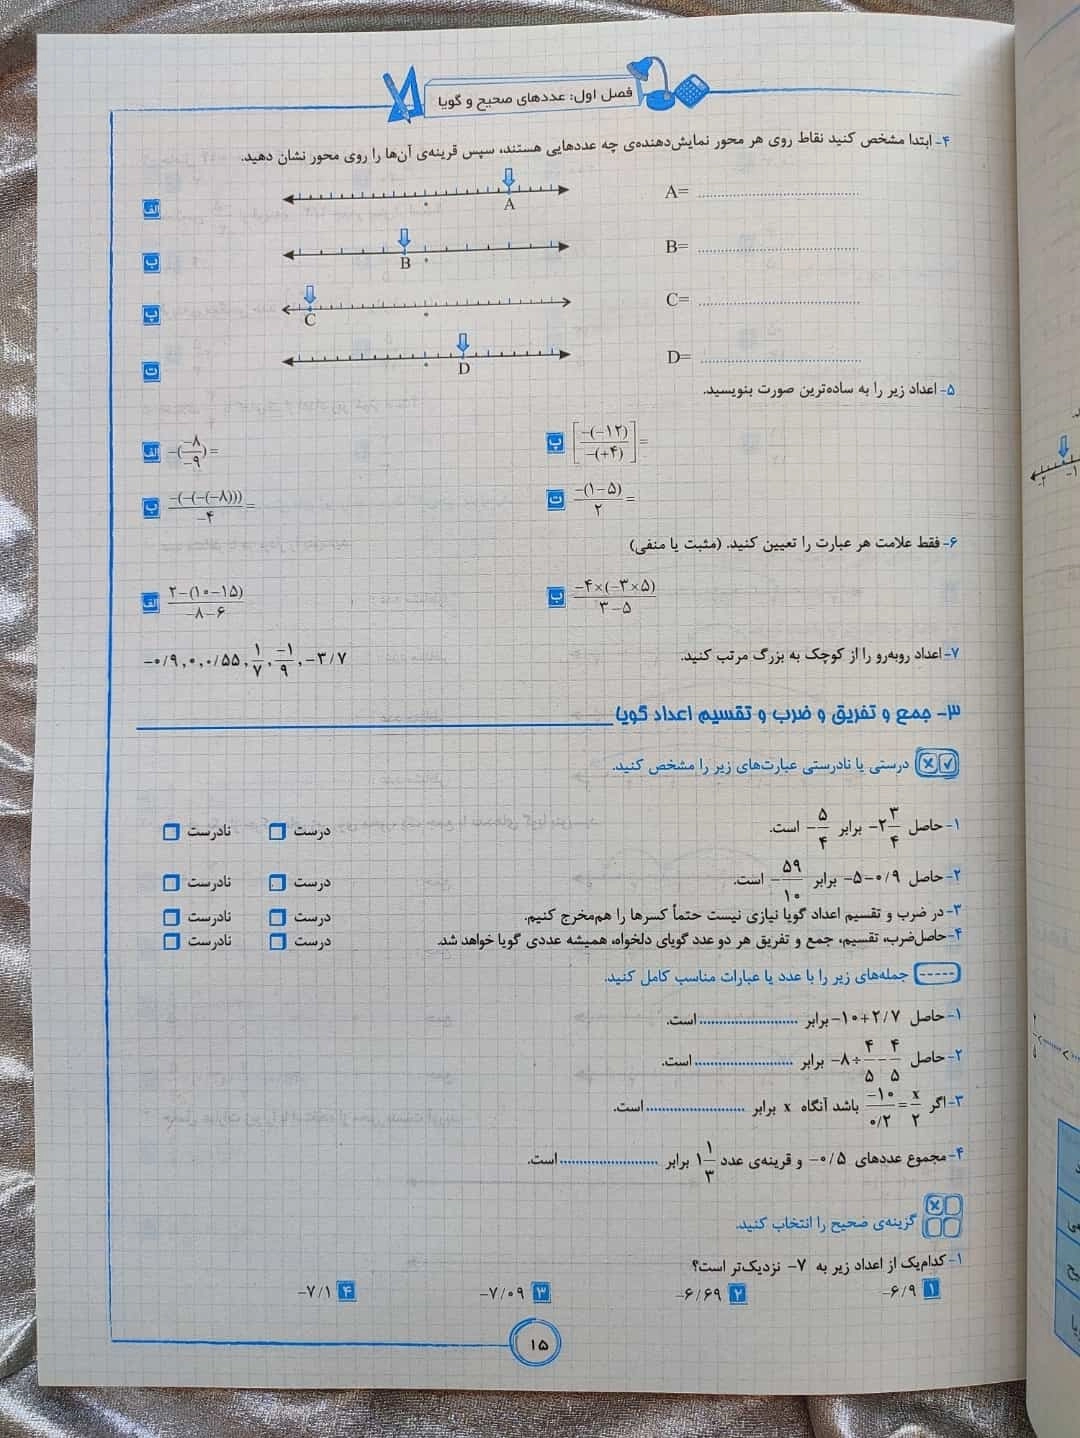 فصل اول: عددهای صحیح و گویا
۴- ابتدا مشخص کنید نقاط روی هر محور نمایش‌دهنده‌ی چه عددهایی هستند، سپس قرینه‌ی آن‌ها را روی محور نشان دهید.
الف A A= ........................
ب B B= ........................
پ C C= ........................
ت D D= ........................
۵- اعداد زیر را به ساده‌ترین صورت بنویسید.
الف -(-۸/-۹)= پ [-(-۱۲)/-(+۴)]=
ب -(-(-(-۸)))/-۴= ت -(۱-۵)/۲=
۶- فقط علامت هر عبارت را تعیین کنید. (مثبت یا منفی)
الف ۲-(۱۰-۱۵)/-۸-۶ ب -۴×(-۳×۵)/۳-۵
۷- اعداد روبه‌رو را از کوچک به بزرگ مرتب کنید. -۰/۹ , ۰ , ۰/۵۵ , ۱/۷ , -۱/۹ , -۳/۷
۳- جمع و تفریق و ضرب و تقسیم اعداد گویا
درستی یا نادرستی عبارت‌های زیر را مشخص کنید.
۱- حاصل -۲ ۳/۴ برابر -۵/۴ است. درست نادرست
۲- حاصل -۵-۰/۹ برابر -۵۹/۱۰ است. درست نادرست
۳- در ضرب و تقسیم اعداد گویا نیازی نیست حتماً کسرها را هم‌مخرج کنیم. درست نادرست
۴- حاصل‌ضرب، تقسیم، جمع و تفریق هر دو عدد گویای دلخواه، همیشه عددی گویا خواهد شد. درست نادرست
جمله‌های زیر را با عدد یا عبارات مناسب کامل کنید.
۱- حاصل -۱۰+۲/۷ برابر ........................ است.
۲- حاصل -۸÷۴/۵-۴/۵ برابر ........................ است.
۳- اگر -۱۰/۰/۲=x/۲ باشد آنگاه x برابر ........................ است.
۴- مجموع عددهای -۰/۵ و قرینه‌ی عدد ۱ ۱/۳ برابر ........................ است.
گزینه‌ی صحیح را انتخاب کنید.
۱- کدام‌یک از اعداد زیر به -۷ نزدیک‌تر است؟
۱ -۶/۹ ۲ -۶/۶۹ ۳ -۷/۰۹ ۴ -۷/۱
۱۵
-۲ -۱